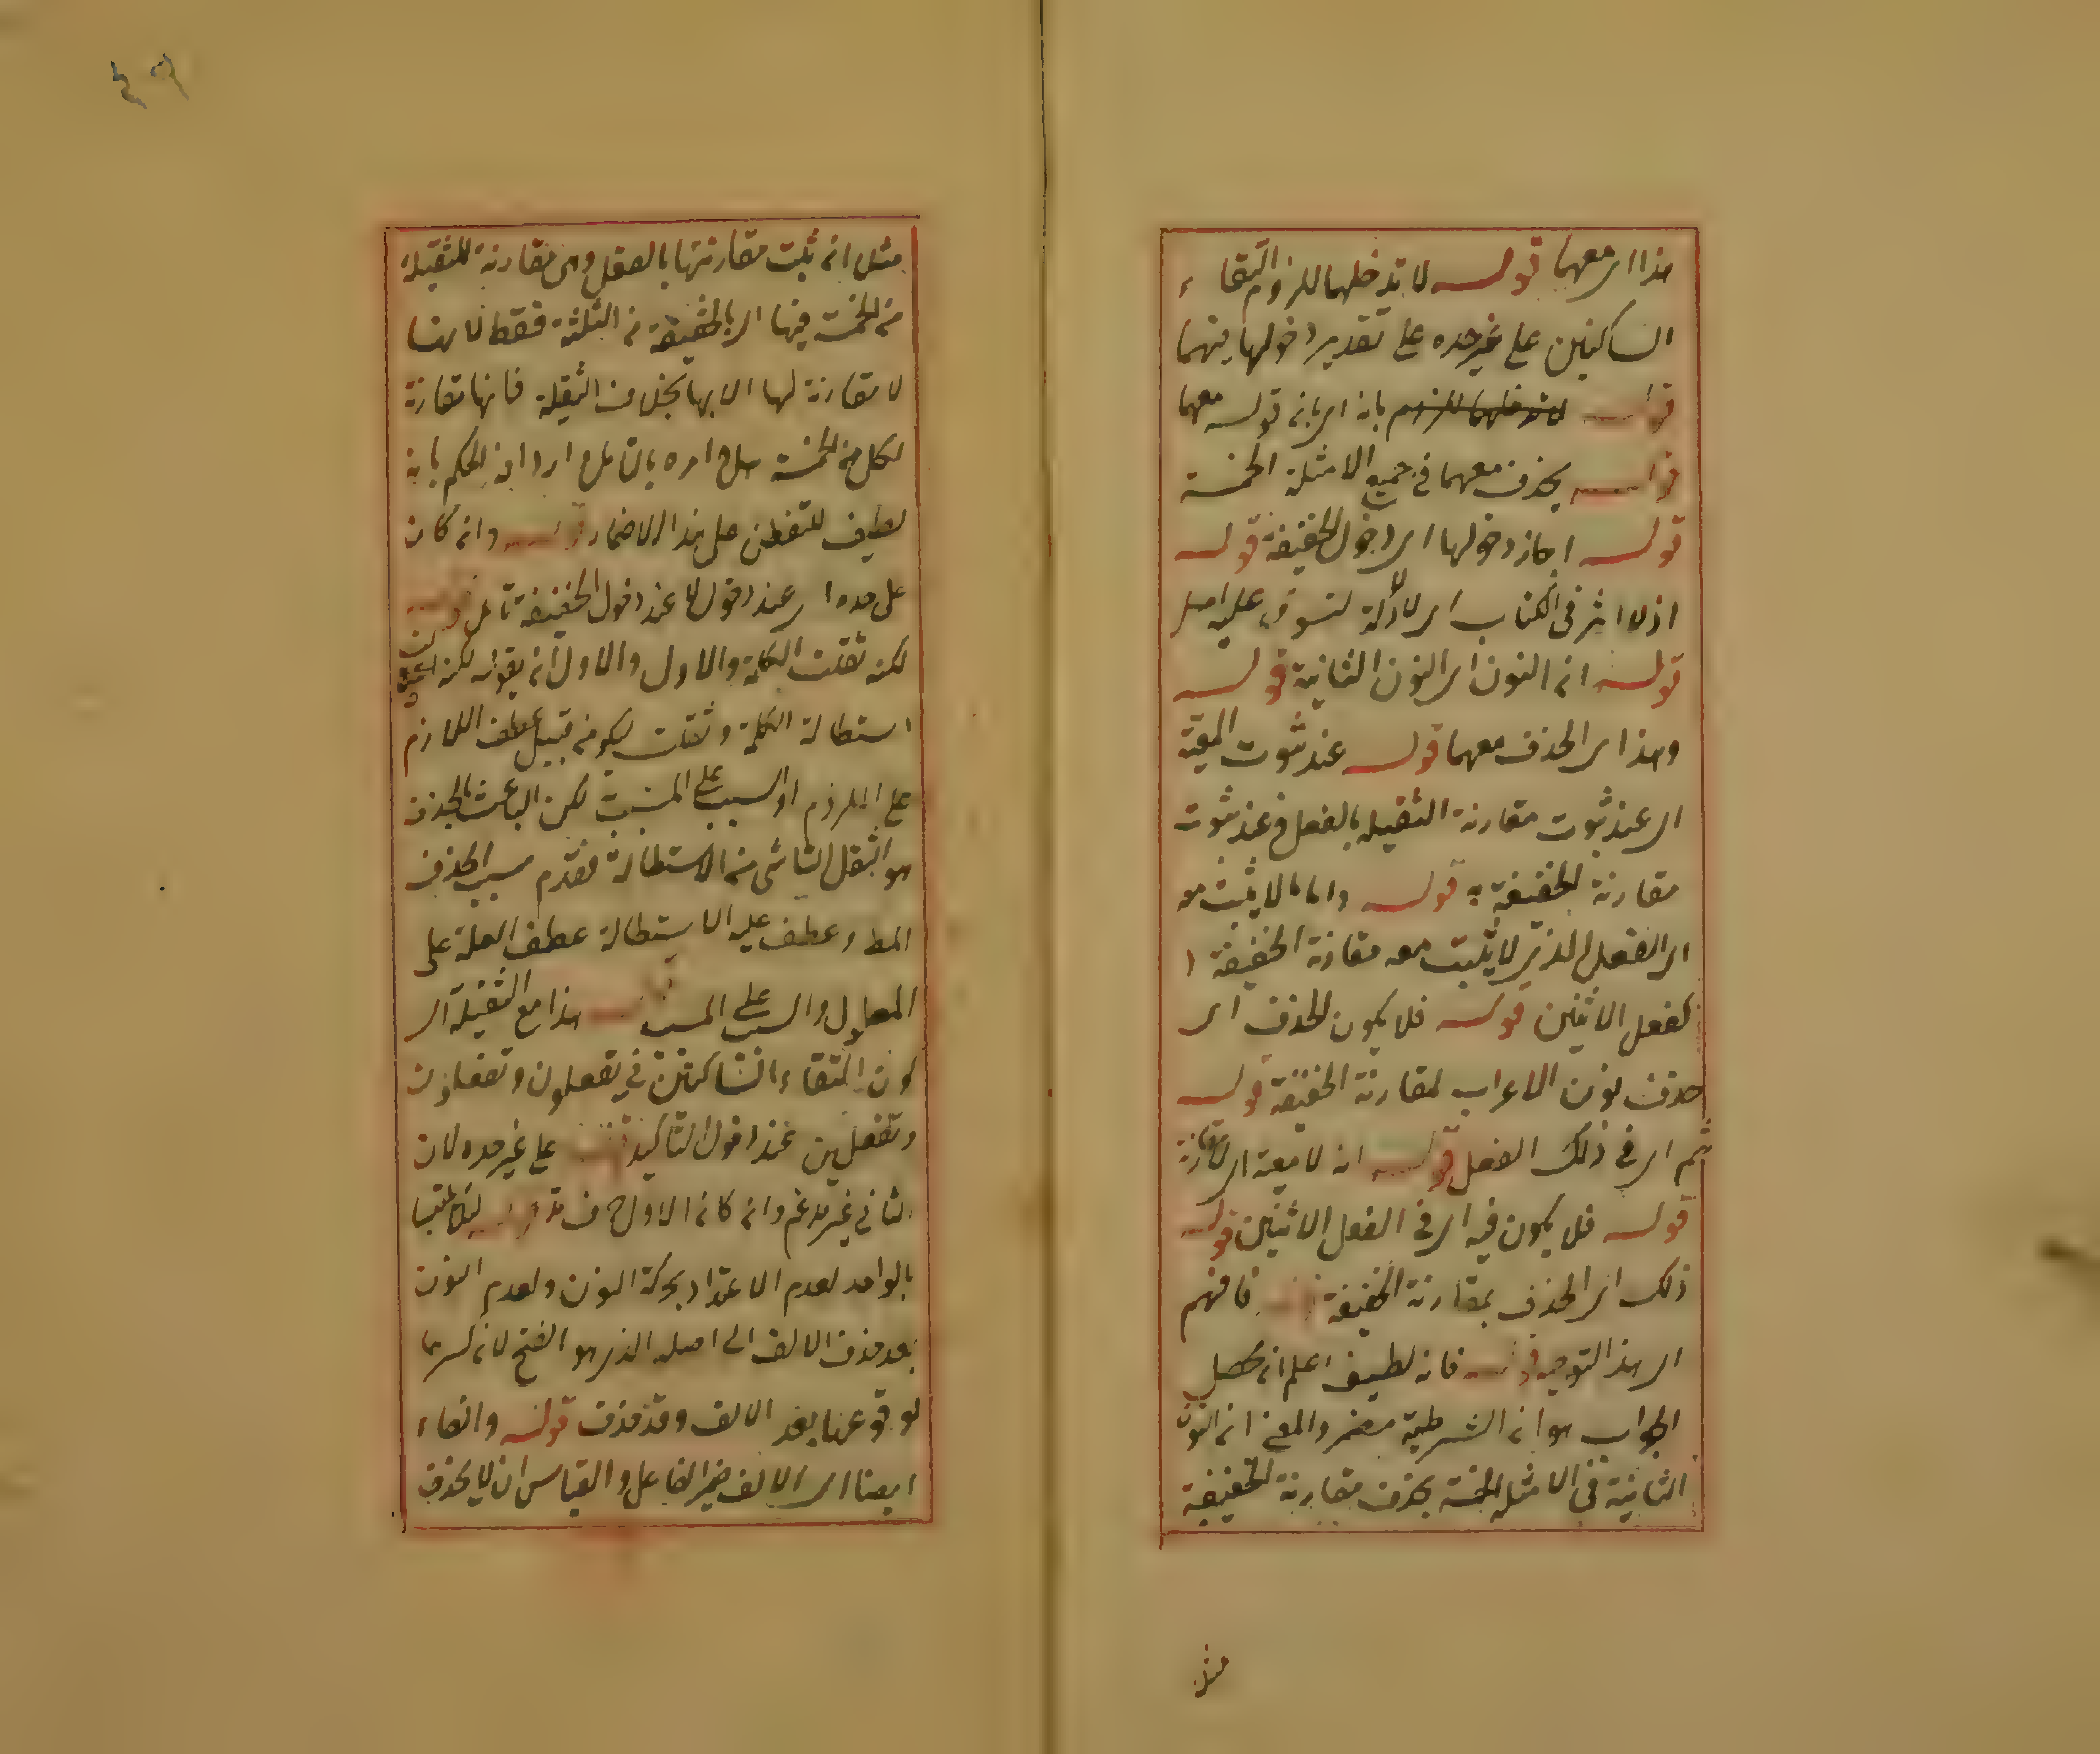 هذا اى معهما قوله لا تدخلهما للزوم التقاء
الساكنين على غير حده على تقدير دخولها فيهما
قوله لا تدخلهما للزوم بانه اى بانه قوله معهما
قوله يحذف معهما فى جميع الامثلة الخمسة
قوله اجاز دخولها اى دخول الخفيفة قوله
اذ لا اثر فى الكتاب اى لا دلالة عليه اصلا
قوله ان النون اى النون الثانية قوله
وهذا اى الحذف معهما قوله عند ثبوت المعية
اى عند ثبوت مقارنة الثقيلة بالفعل وعند ثبوت
مقارنة الخفيفة به قوله واما ما لا يثبت معه
اى الفعل الذى لا يثبت معه مقارنة الخفيفة
كفعل الاثنين قوله فلا يكون الحذف اى
حذف نون الاعراب لمقارنة الخفيفة قوله
ثم اى فى ذلك الفعل قوله انه لا معية اى لا مقارنة
قوله فلا يكون فيه اى فى الفعل الاثنين قوله
ذلك اى الحذف بمقارنة الخفيفة قوله فافهم
اى هذا التوجيه قوله فانه لطيف اعلم ان محصل
الجواب هو ان الشرطية مضمر والمعنى ان النون
الثانية فى الامثلة الخمسة يحذف مقارنة الخفيفة
مثل
٤٩
مثل ان ثبت مقارنتها بالفعل وهى مقارنة للثقيلة
من الخمسة فيها اى بالخفيفة من الثلثة فقط لانها
لا مقارنة لها الا بها بخلاف الثقيلة فانها مقارنة
لكل من الخمسة امره بالتامل اردافه الحكم بانه
لطيف للتفطن على هذا الاضمار قوله وان كان
على حده اى عند دخول لا عند دخول الخفيفة تامل قوله
لكن ثقلت الكلمة والاول والاولى ان يقول لكن
استطالة الكلمة وثقلت ليكون من قبيل عطف اللازم
على الملزوم او السبب على المسبب لكن الباعث بالحذف
هو الثقل الناشى من الاستطالة فقدم سبب الحذف
وعطف عليه الاستطالة عطف العلة على
المعلول والسبب على المسبب قوله هذا مع الثقيلة اى
كون التقاء الساكنين فى تفعلون وتفعلون
وتفعلين عند دخول التاكيد قوله على غير حده لان
الثانى غير مدغم وان كان الاول حرف مد قوله لئلا يلتبسا
بالواحد لعدم الاعتداد بحركة النون ولعدم النون
بعد حذف الالف الى اصله الذى هو الفتح لان كسرها
لوقوعها بعد الالف وقد حذفت قوله وانها
ايضا اى الالف ضمير الفاعل والقياس ان لا يحذف